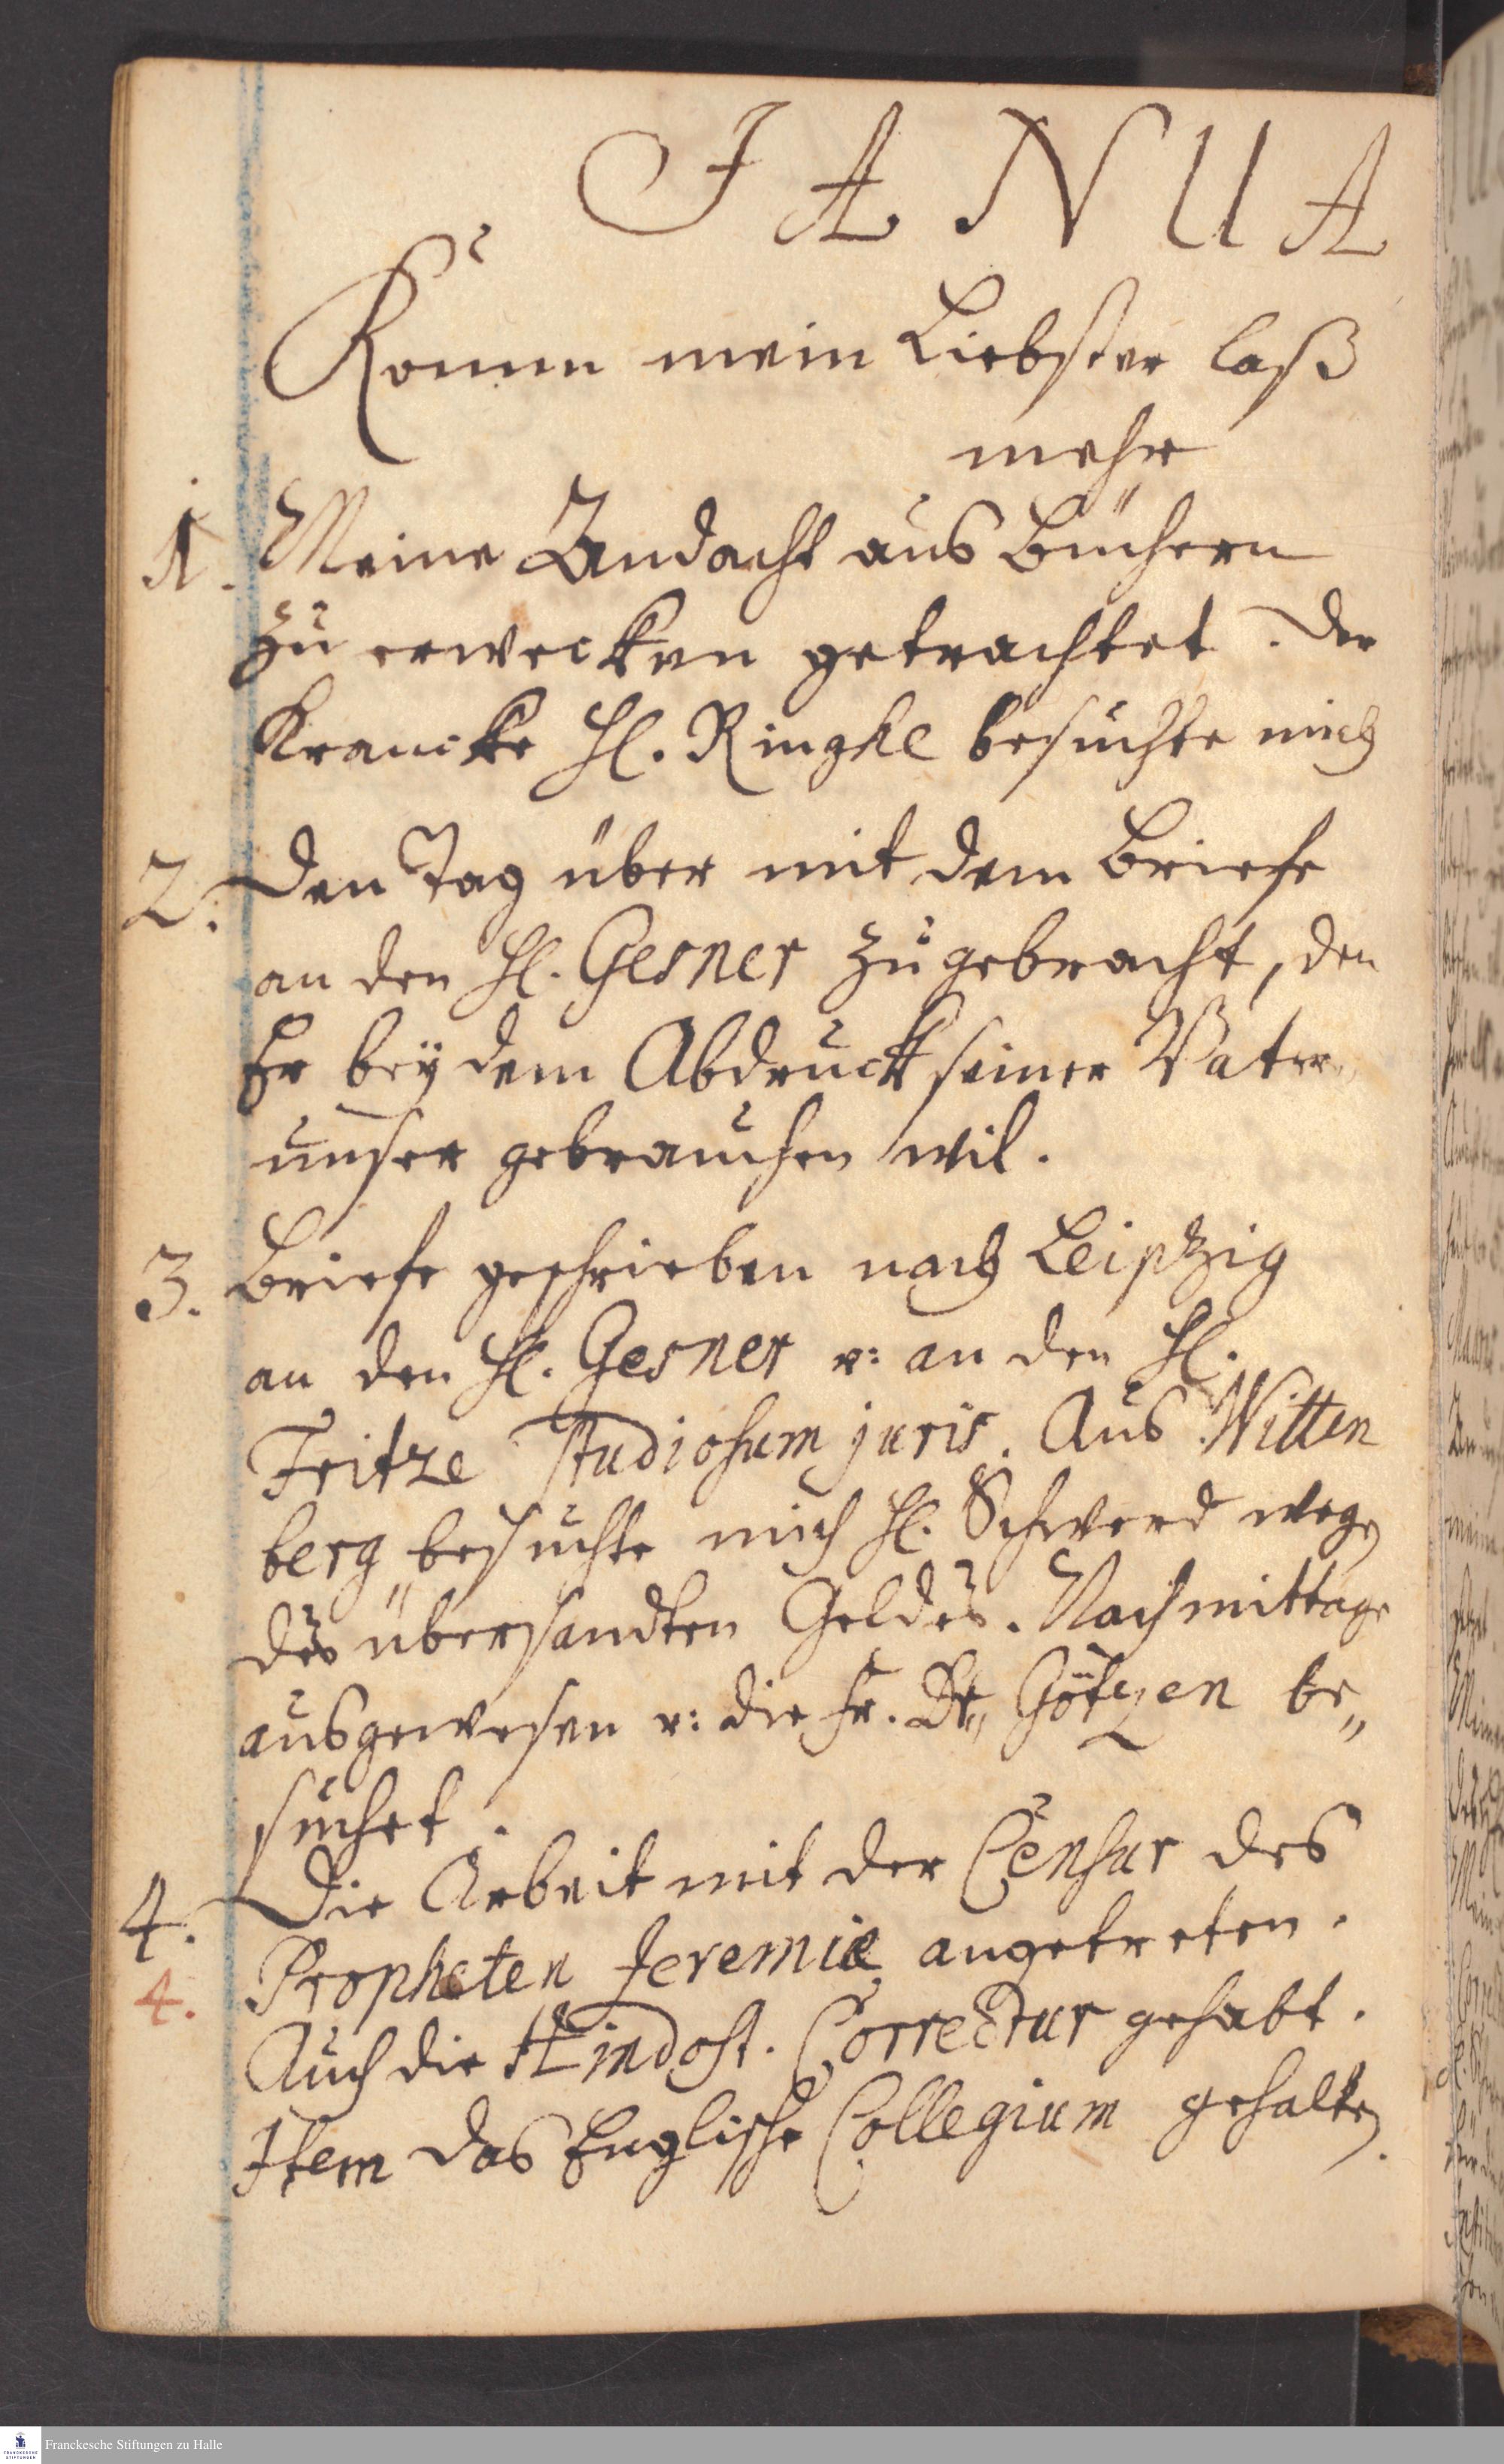 JANUA
Komm mein Liebster laß
mehr
1. Meine Andacht aus Büchern
zu erwecken getrachtet. Der
Krancke H. Ringke besuchte mich
2. Den Tag über mit dem Briefe
an den H. Gesner zugebracht, den
Er bey dem Abdruck seiner Vater
unser gebrauchen wil.
3. Briefe geschrieben nach Leipzig
an den H. Gesner u: an den H.
Fritze Studiosum juris. Aus Witten
berg besuchte mich H. Schwerd wegen
des übersandten Geldes. Nachmittage
ausgewesen u: die Fr. Dr. Götzen be„
suchet.
4. Die Arbeit mit der Censur des
4. Propheten Jeremiæ angetreten.
Auch die Hindost. Correctur gehabt.
Item das Englische Collegium gehalten.
Franckesche Stiftungen zu Halle